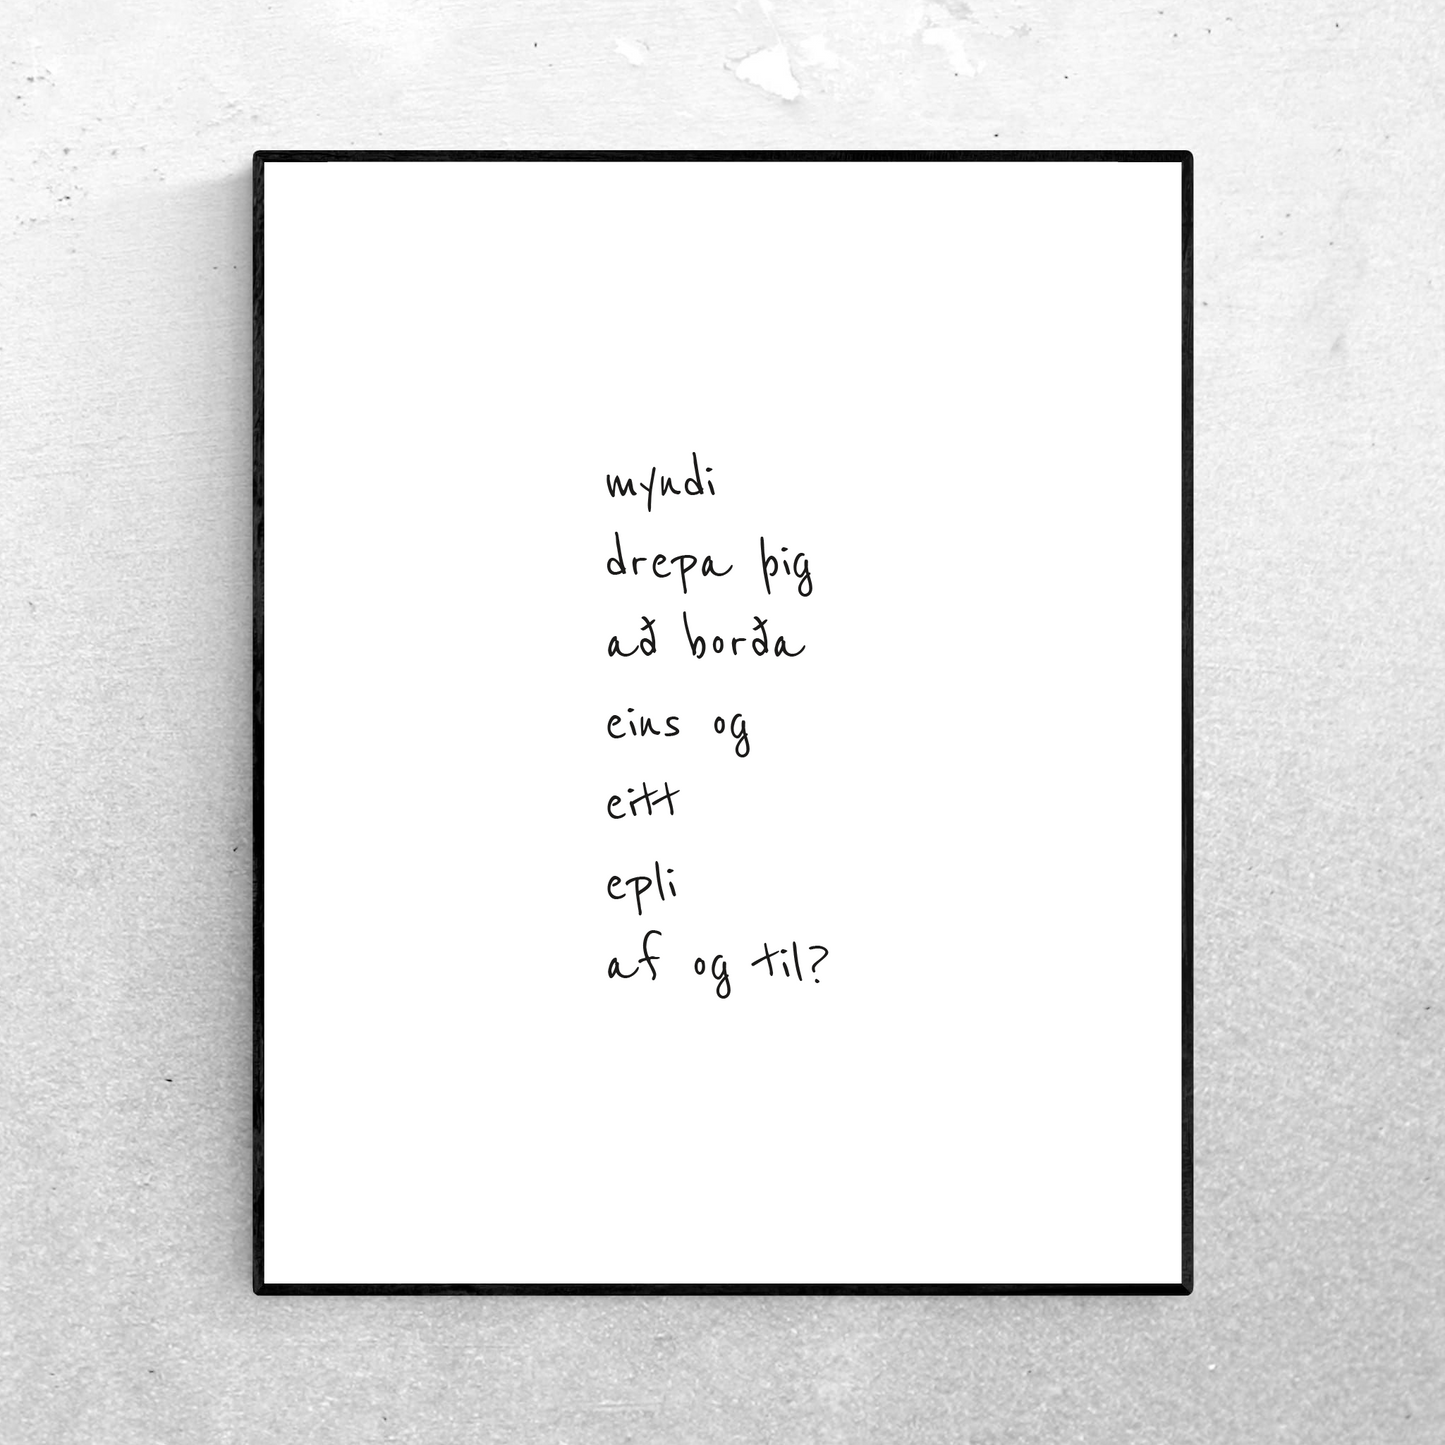 myndi
drepa þig
að borða
eins og
eitt
epli
af og til?